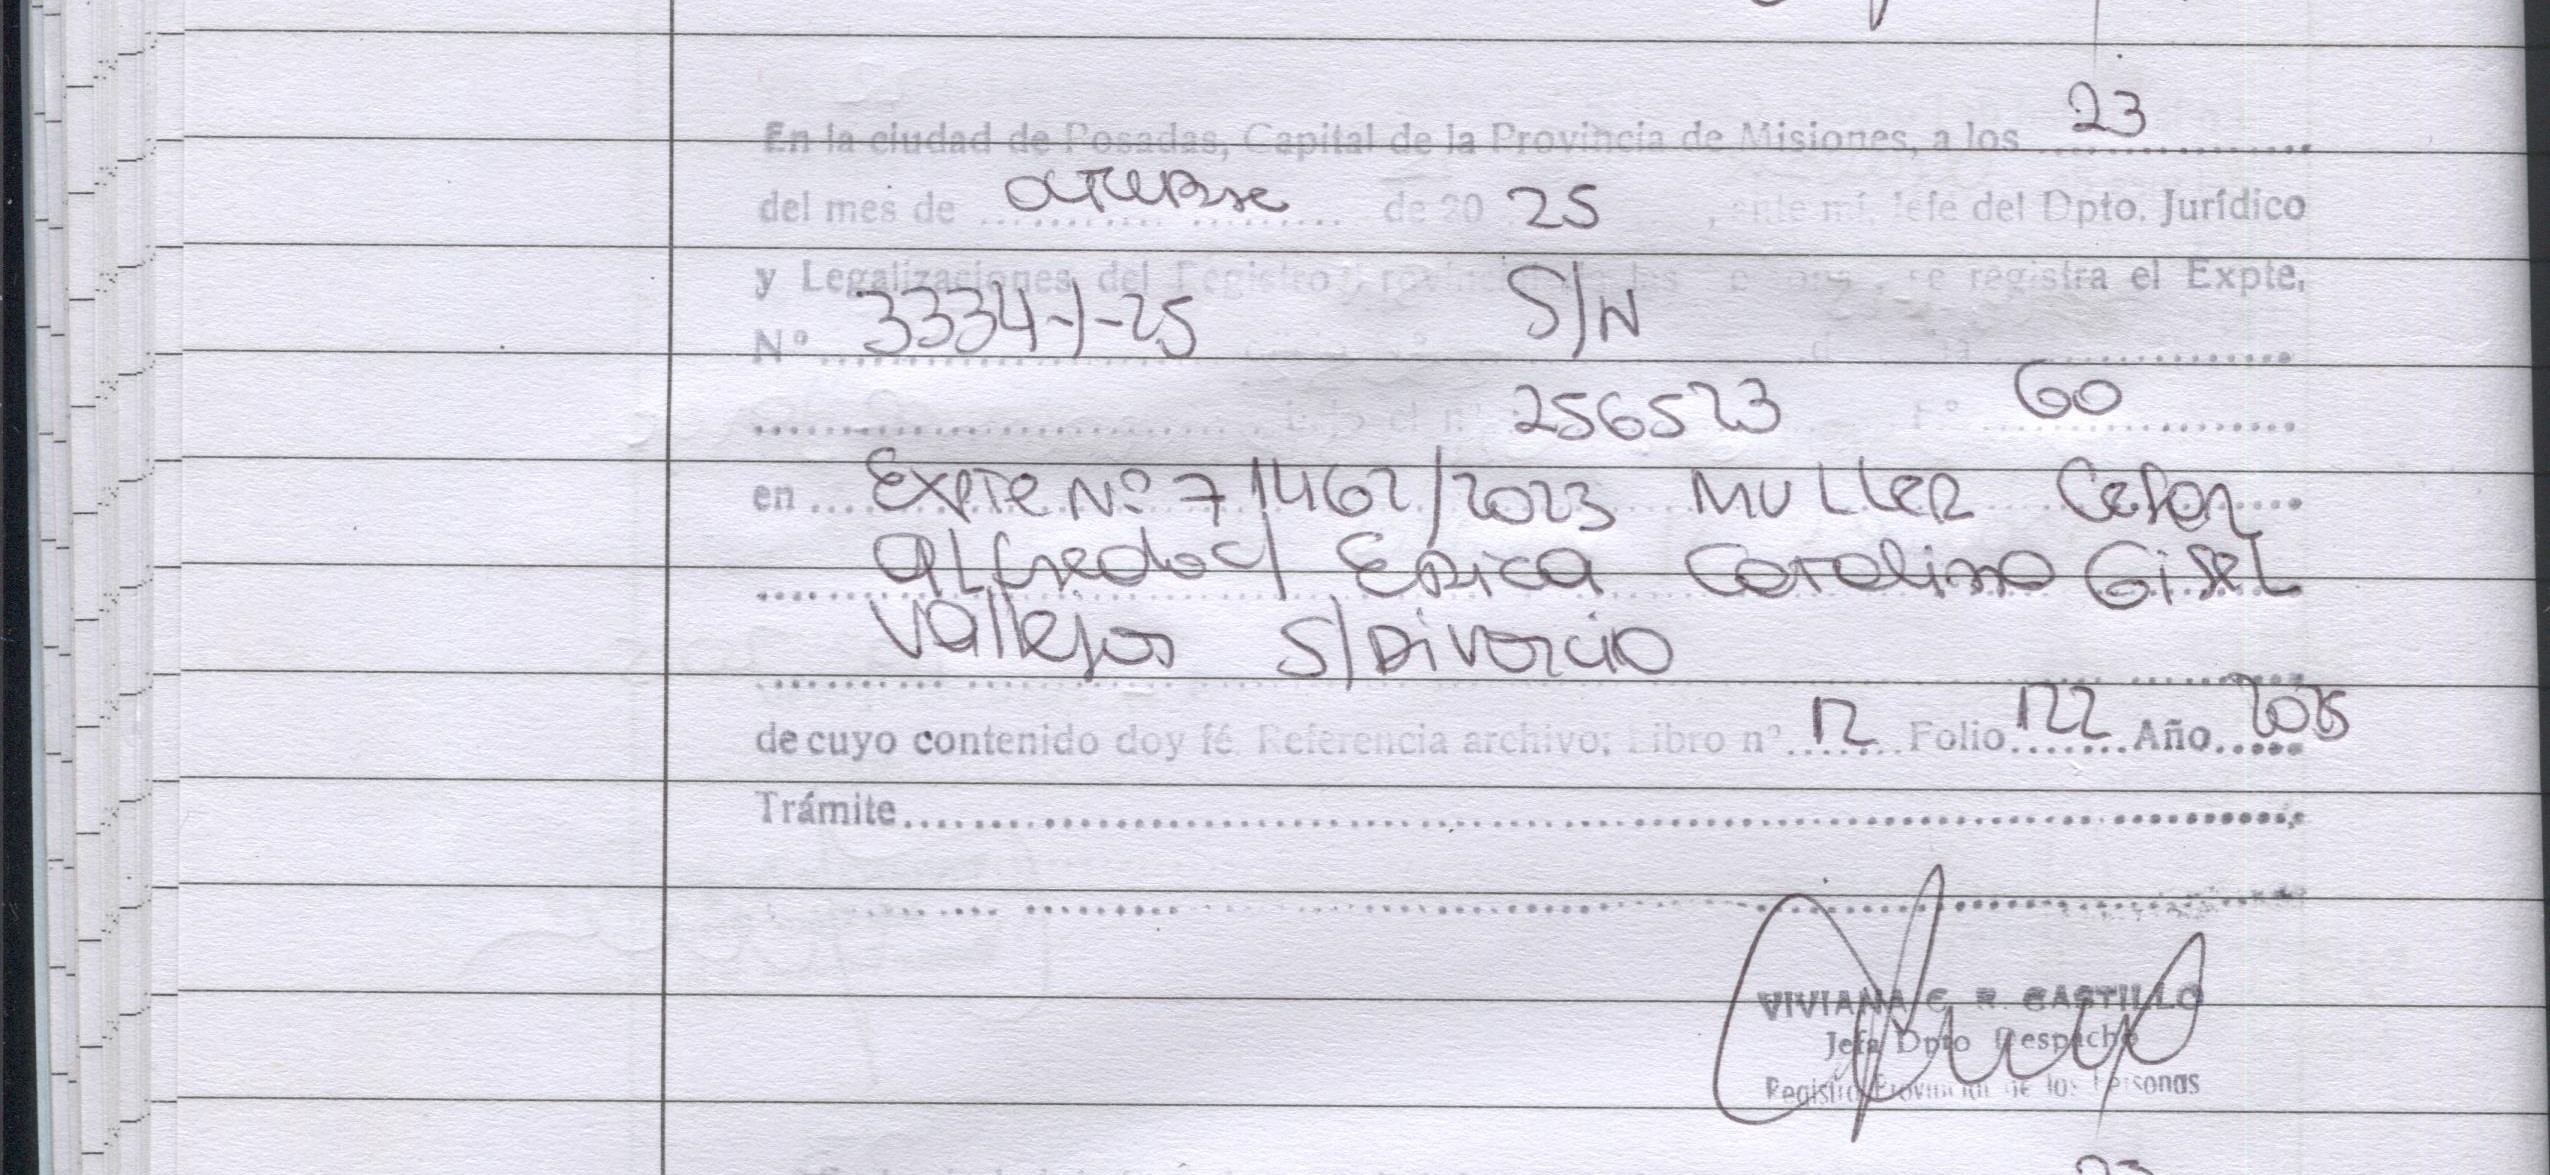 23
En la ciudad de Posadas, Capital de la Provincia de Misiones, a los
del mes de octubre de 20 25, ante mí, Jefe del Dpto. Jurídico
y Legalizaciones del Registro Provincial de las Personas, se registra el Expte.
Nº 3334-J-25 S/N
bajo el nº 256523 Fº 60
en Expte Nº 71462/2023 MULLER Cesar
Alfredo c/ Erica Carolina Gisel
Vallejos S/Divorcio
de cuyo contenido doy fé. Referencia archivo; Libro nº 12 Folio 122 Año 2025
Trámite
VIVIANA C. R. CASTILLO
Jefa Dpto Despacho
Registro Provincial de las Personas
23